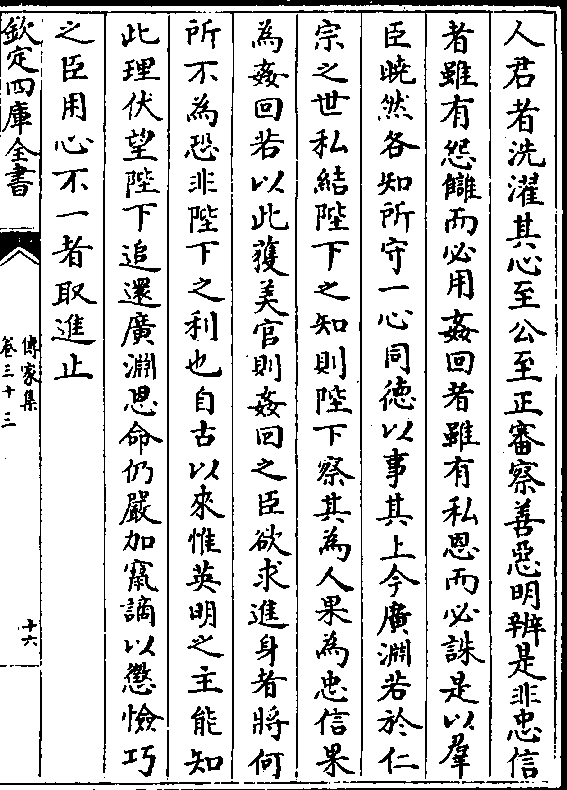 人君者洗濯其心至公至正審察善惡明辨是非忠信
者雖有怨讎而必用姦回者雖有私恩而必誅是以羣
臣曉然各知所守一心同德以事其上今廣淵若於仁
宗之世私結陛下之知則陛下察其為人果為忠信果
為姦回若以此獲美官則姦回之臣欲求進身者將何
所不為恐非陛下之利也自古以來惟英明之主能知
此理伏望陛下追還廣淵恩命仍嚴加竄謫以懲憸巧
之臣用心不一者取進止
欽定四庫全書
傳家集
卷三十三
十六